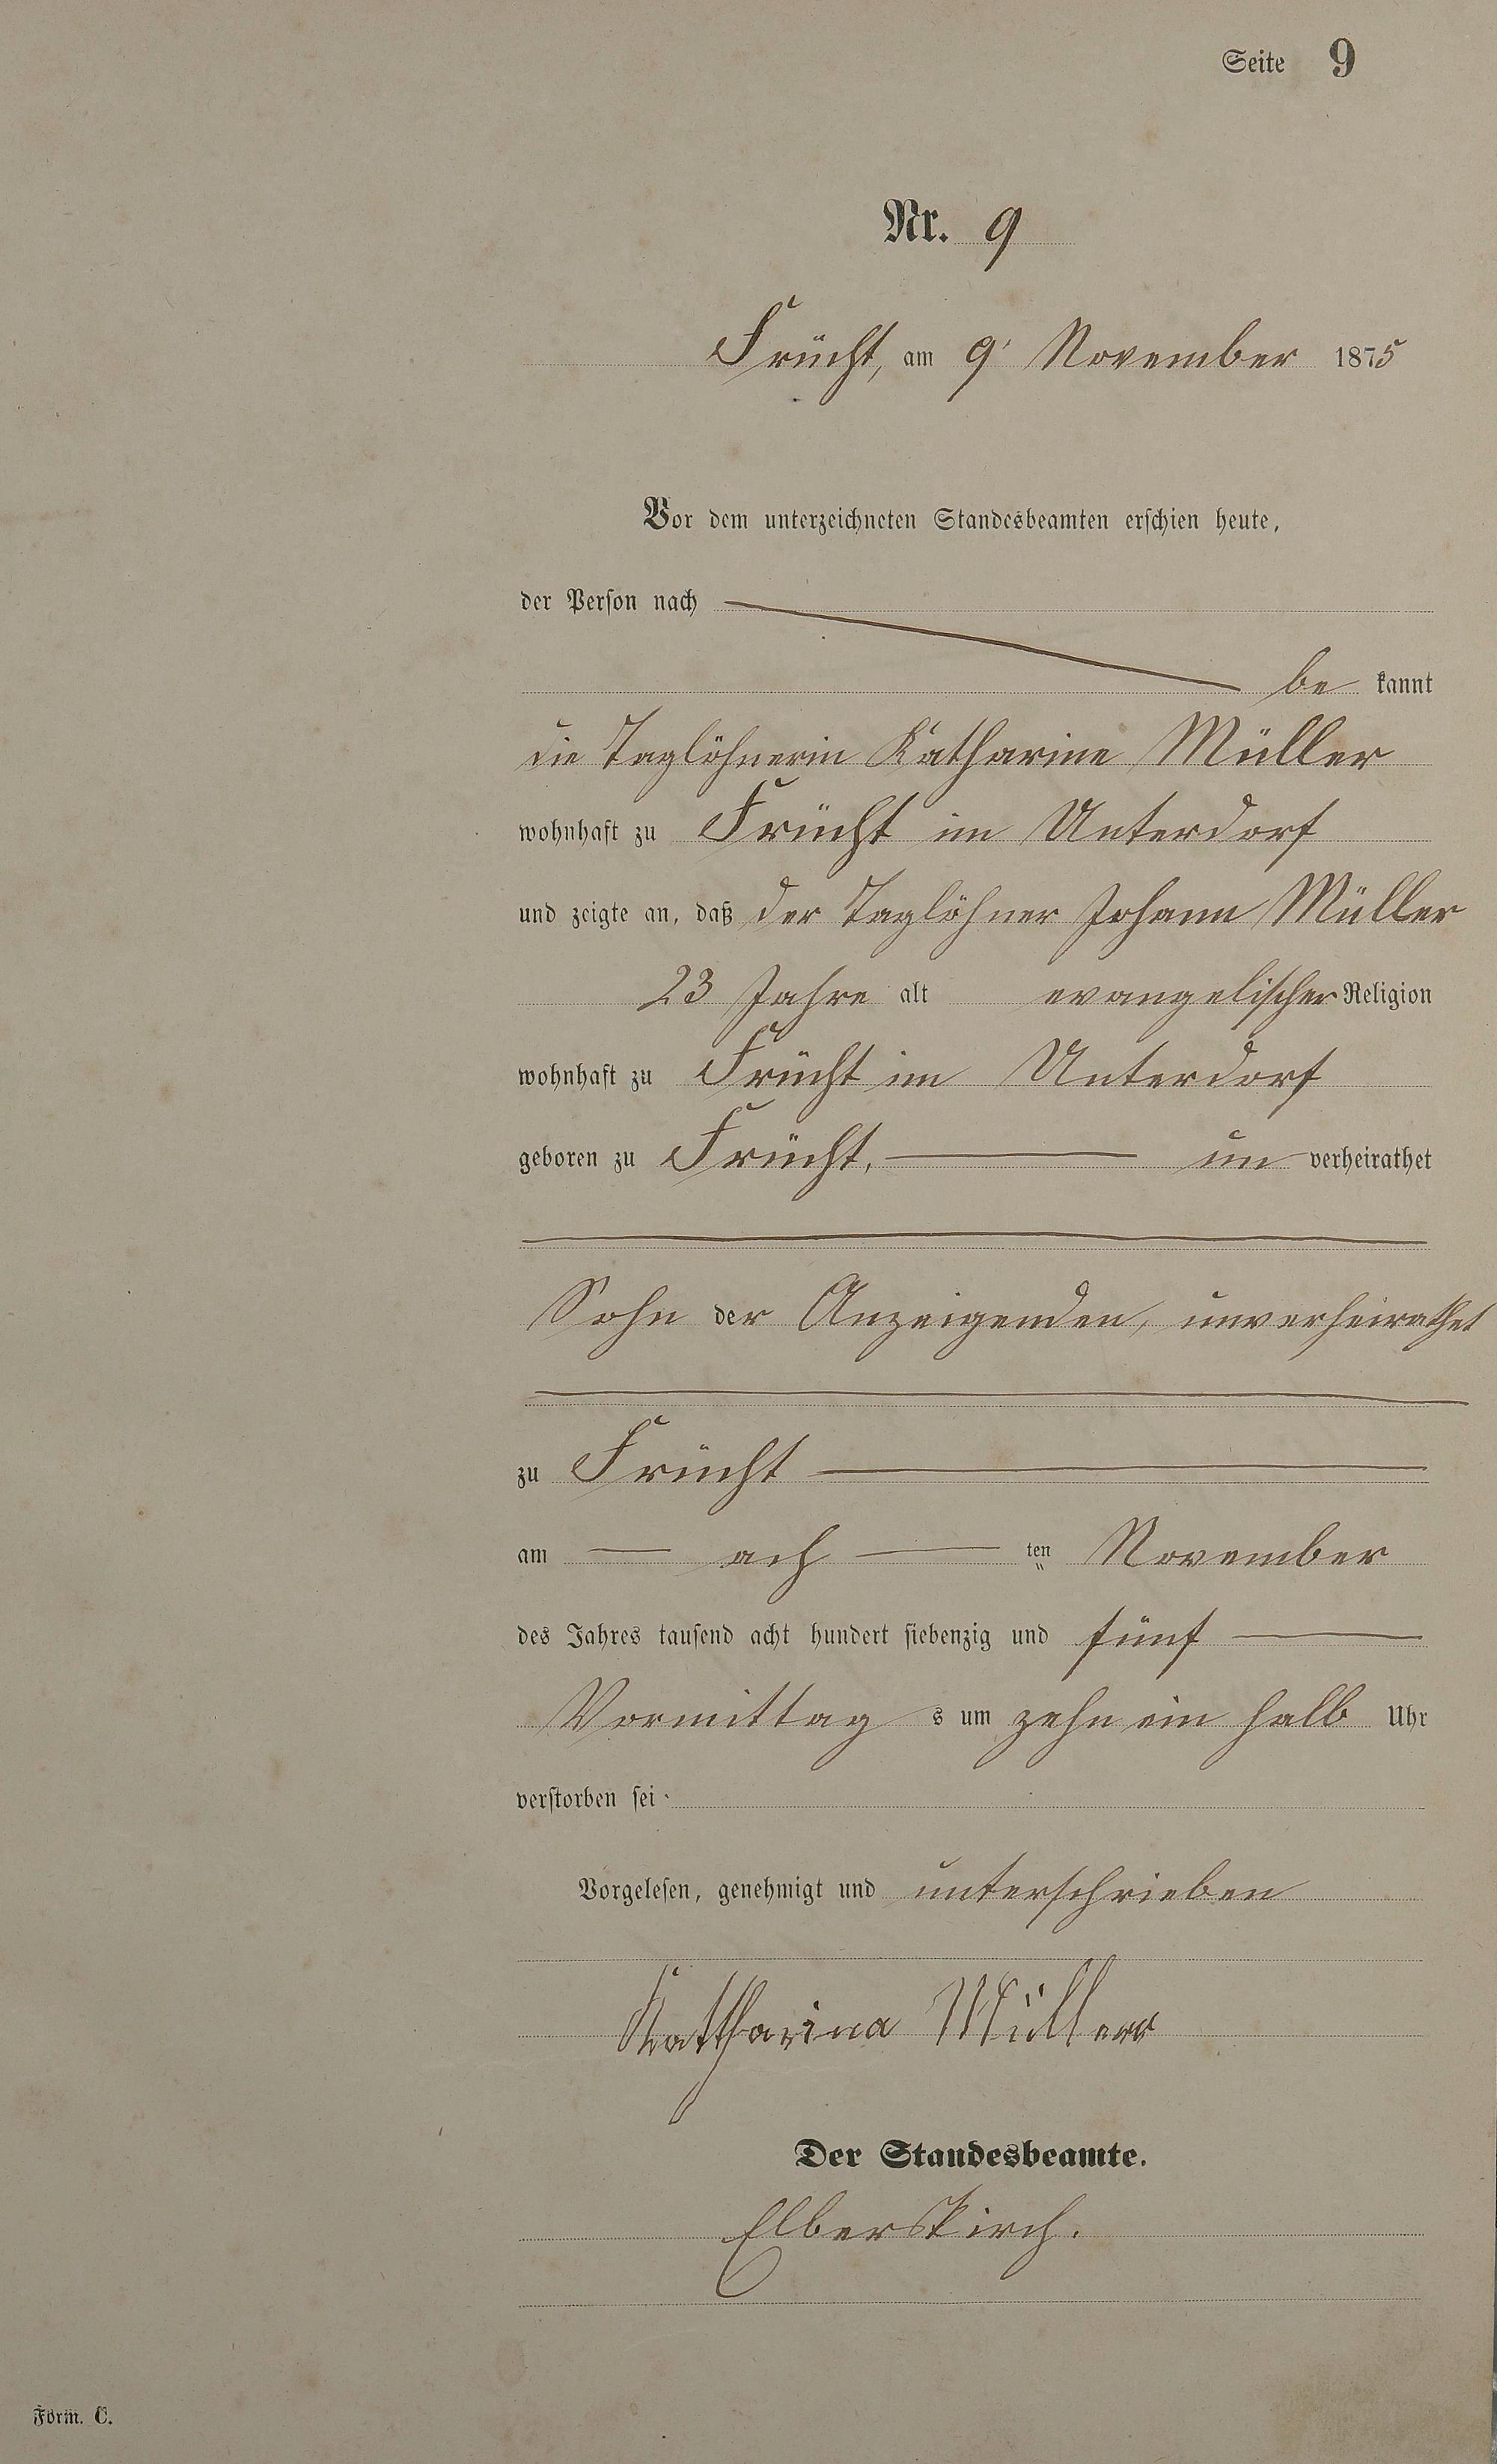 Seite 9
Nr. 9
Frücht, am 9' November 1875
Vor dem unterzeichneten Standesbeamten erschien heute,
der Person nach
be kannt
die Taglöhnerin Katharine Müller
wohnhaft zu Frücht im Unterdorf
und zeigte an, daß der Taglöhner Johann Müller
23 Jahre alt evangelischer Religion
wohnhaft zu Frücht im Unterdorf
geboren zu Frücht, un verheirathet
Sohn der Anzeigenden, unverheirathet
zu Frücht
am ach ten November
des Jahres tausend acht hundert siebenzig und fünf
Vormittag s um zehn ein halb Uhr
verstorben sei
Vorgelesen, genehmigt und unterschrieben
Kattharina Müller
Der Standesbeamte.
Elberskirch.
Form. C.